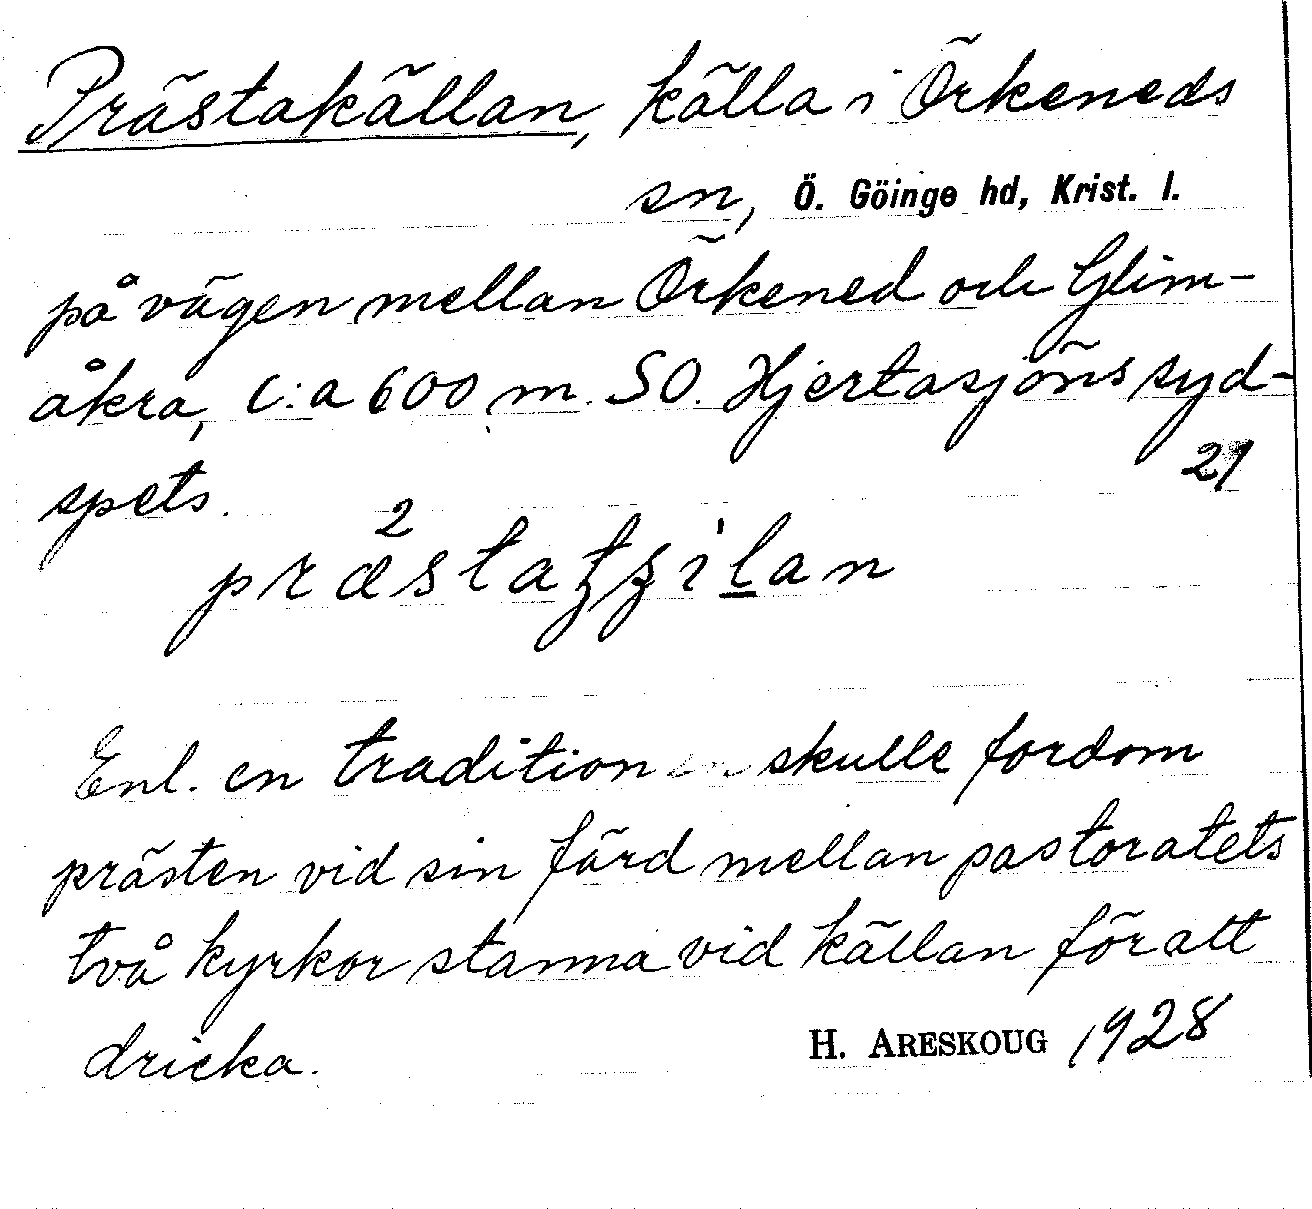 Prästakällan, källa i Örkeneds
sn, Ö. Göinge hd, Krist. l.
på vägen mellan Örkened och Glim-
åkra, c:a 600 m. SO. Hjertasjöns syd-
spets.
21
2
Enl. en tradition skulle fordom
prästen vid sin färd mellan pastoratets
två kyrkor stanna vid källan för att
dricka.
H. ARESKOUG 1928